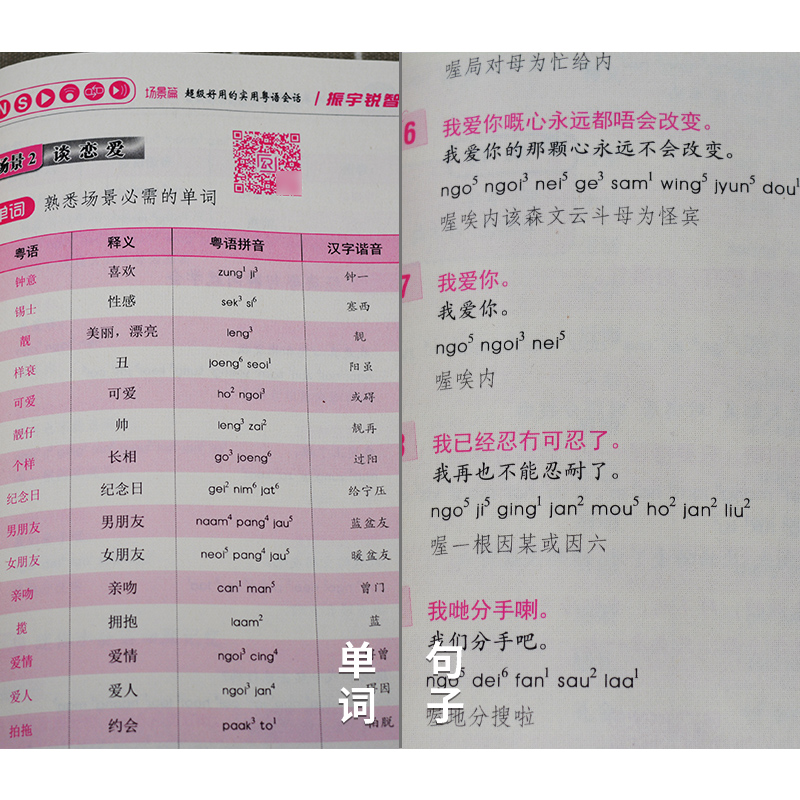 场景篇 超级好用的实用粤语会话 振宇锐智
场景2 谈恋爱
单词 熟悉场景必需的单词
粤语 释义 粤语拼音 汉字谐音
钟意 喜欢 zung¹ ji³ 钟一
锡士 性感 sek³ si⁶ 塞西
靓 美丽，漂亮 leng³ 靓
样衰 丑 joeng⁶ seoi¹ 阳虽
可爱 可爱 ho² ngoi³ 或碍
靓仔 帅 leng³ zai² 靓再
个样 长相 go³ joeng⁶ 过阳
纪念日 纪念日 gei² nim⁶ jat⁶ 给宁压
男朋友 男朋友 naam⁴ pang⁴ jau⁵ 蓝盆友
女朋友 女朋友 neoi⁵ pang⁴ jau⁵ 暖盆友
亲吻 亲吻 can¹ man⁵ 曾门
揽 拥抱 laam² 蓝
爱情 爱情 ngoi³ cing⁴ 曾
爱人 爱人 ngoi³ jan⁴ 因
拍拖 约会 paak³ to¹ 脱
单词
喔局对母为忙给内
6 我爱你嘅心永远都唔会改变。
我爱你的那颗心永远不会改变。
ngo⁵ ngoi³ nei⁵ ge³ sam¹ wing⁵ jyun⁵ dou¹
喔唉内该森文云斗母为怪宾
7 我爱你。
我爱你。
ngo⁵ ngoi³ nei⁵
喔唉内
我已经忍冇可忍了。
我再也不能忍耐了。
ngo⁵ ji⁵ ging¹ jan² mou⁵ ho² jan² liu²
喔一根因某或因六
我哋分手喇。
我们分手吧。
ngo⁵ dei⁶ fan¹ sau² laa¹
喔地分搜啦
句子